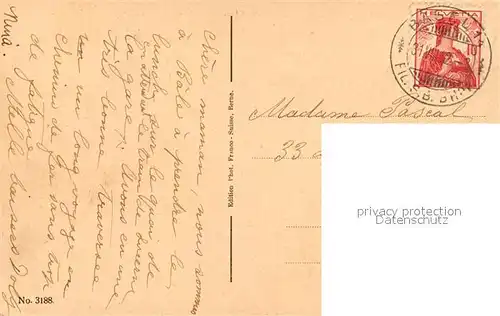 Chère maman, nous sommes
à Bâle à prendre le
lunch sur le quai de
la gare. Avons eu une
très bonne traversée
un long voyage en
chemin de fer sans trop
de fatigue
Mille baisers
Nina.
No. 3188.
Edition Phot. Franco-Suisse, Berne.
BASEL
10
Madame Pascal
33
privacy protection
OLDTHING